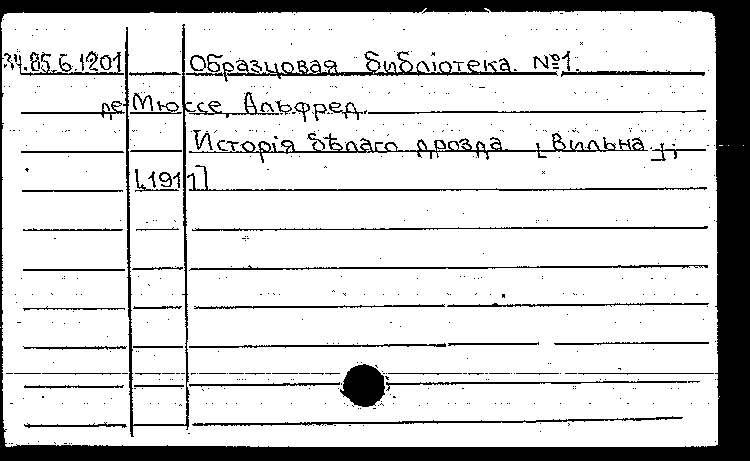 34.85.6.1201 Образцовая библіотека. №1.
де Мюссе, Альфред.
Исторія бѣлаго дрозда. [Вильна];
[1911]